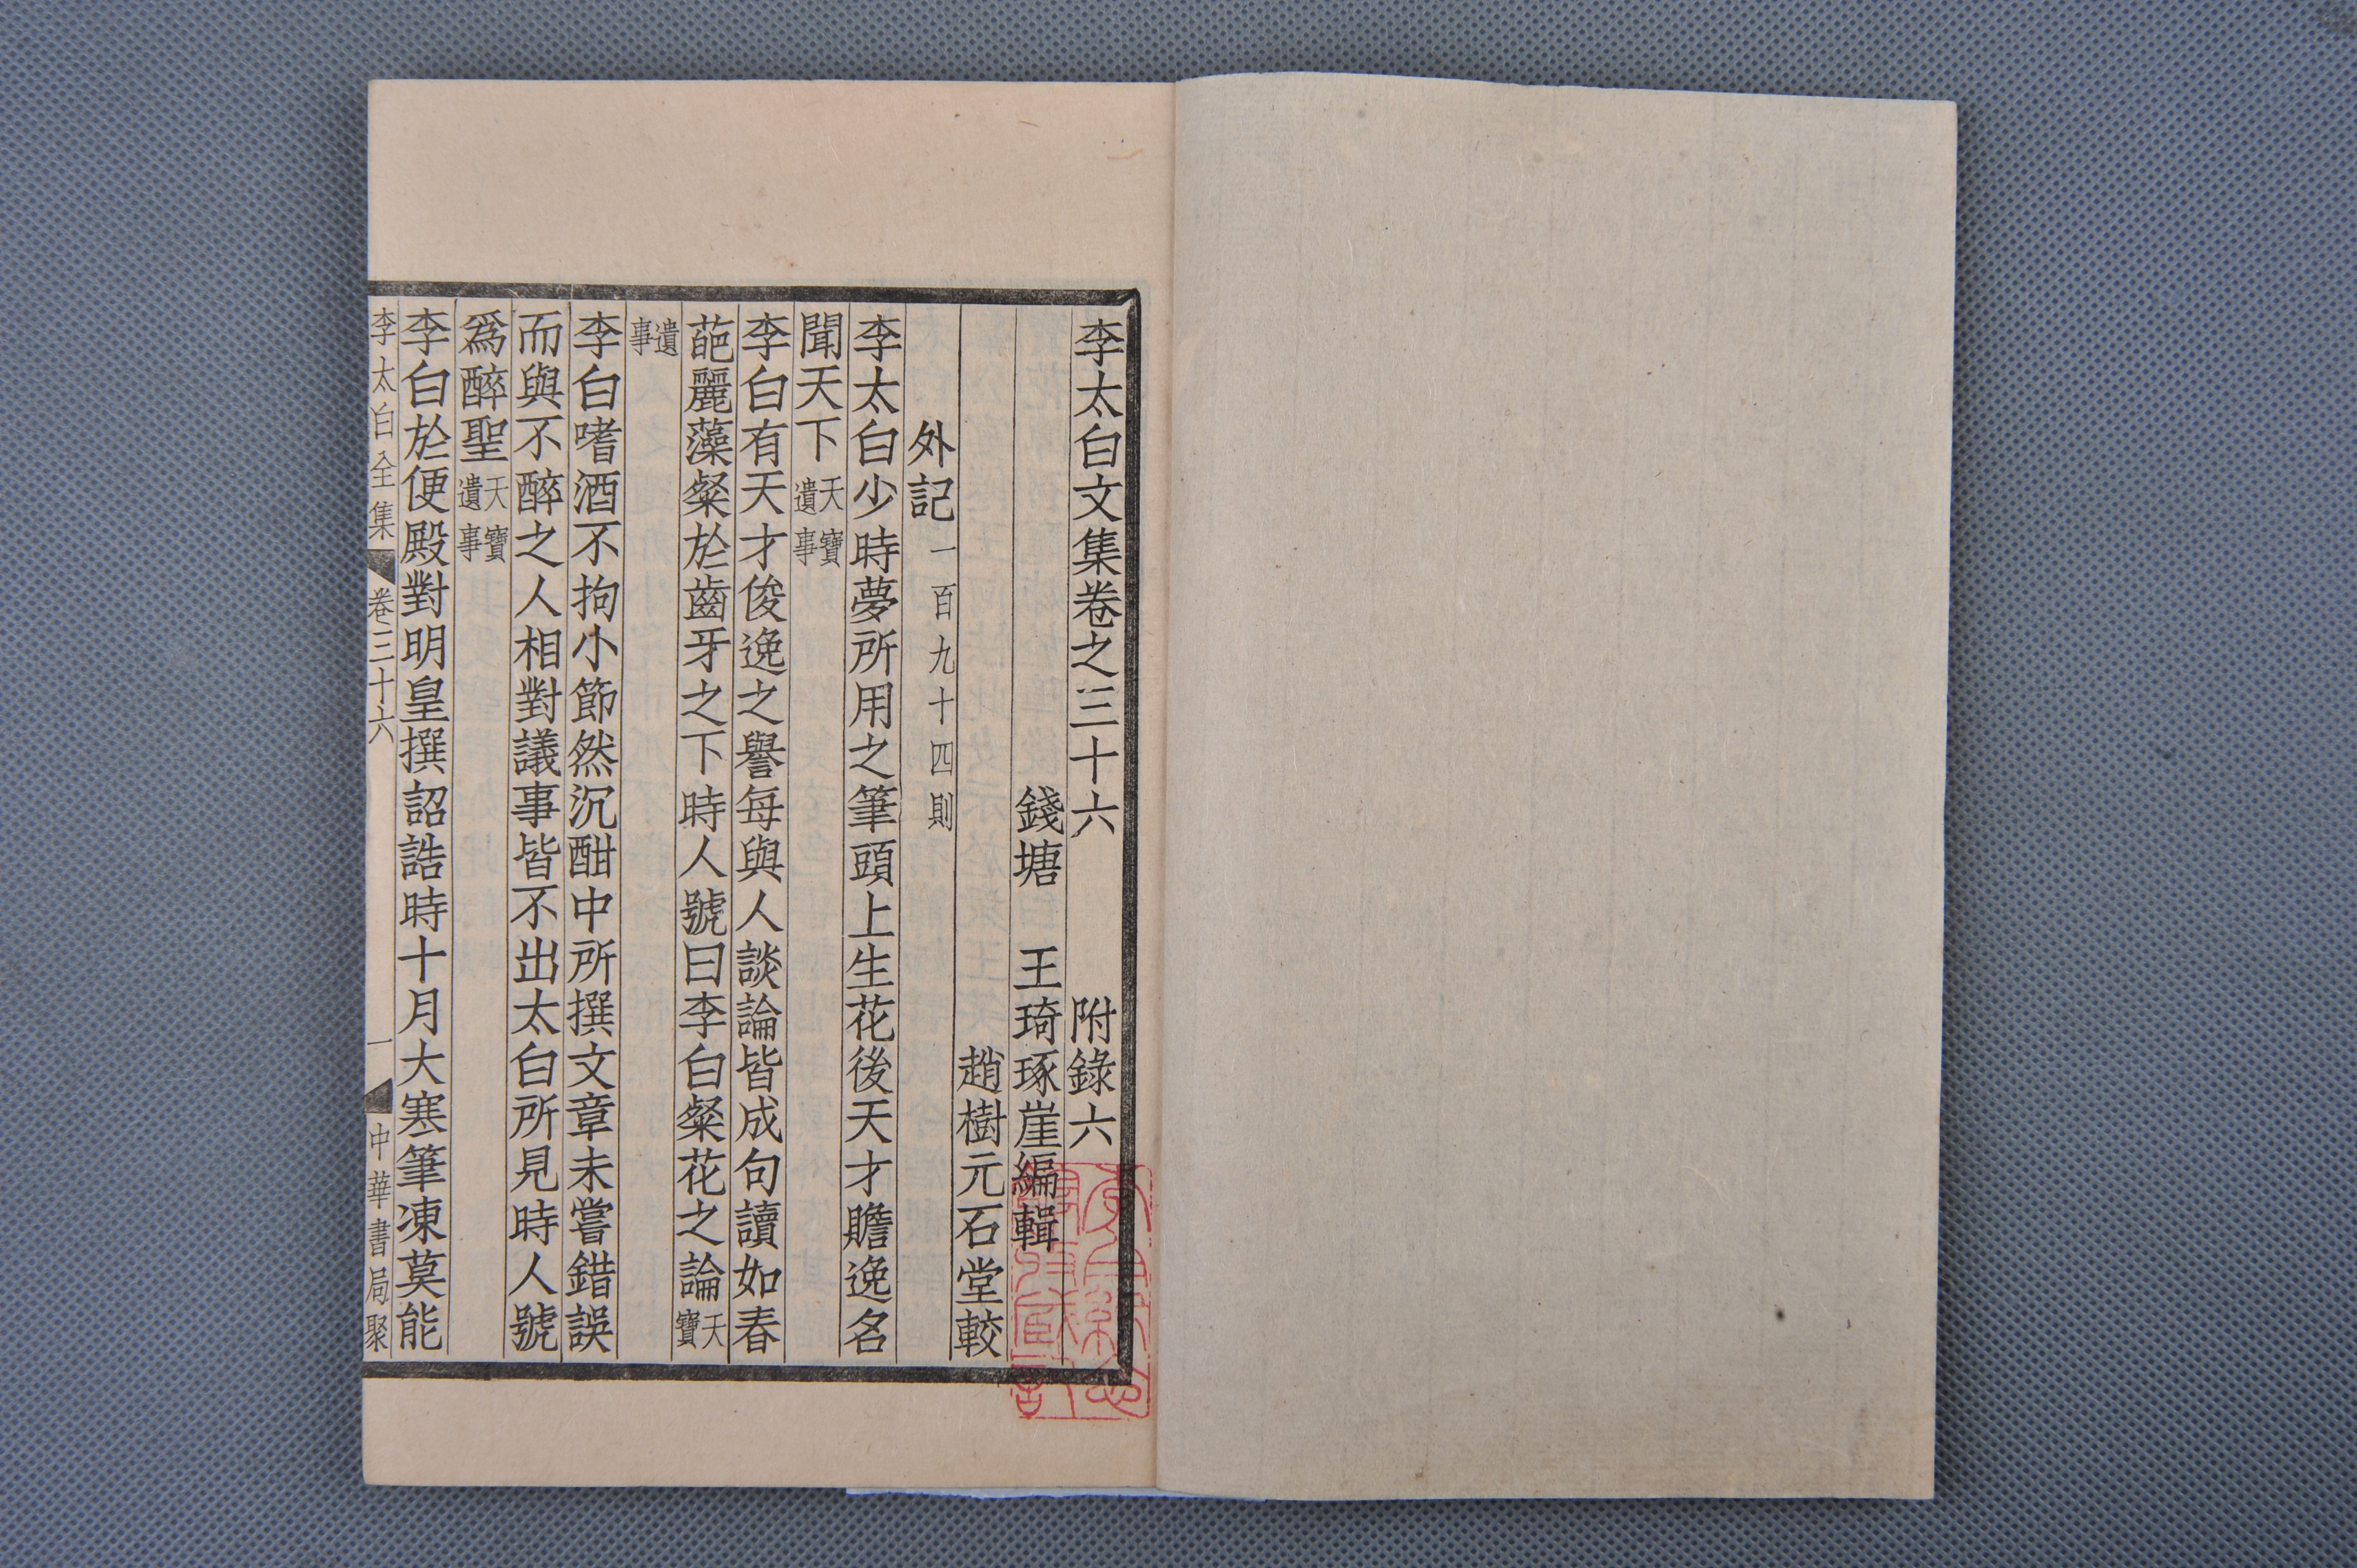 李太白文集卷之三十六 附錄六
錢塘 王琦琢崖編輯
趙樹元石堂較
外記 一百九十四則
李太白少時夢所用之筆頭上生花後天才贍逸名
聞天下 天寶遺事
李白有天才俊逸之譽每與人談論皆成句讀如春
葩麗藻粲於齒牙之下時人號曰李白粲花之論 天寶
遺事
李白嗜酒不拘小節然沉酣中所撰文章未嘗錯誤
而與不醉之人相對議事皆不出太白所見時人號
爲醉聖 天寶遺事
李白於便殿對明皇撰詔誥時十月大寒筆凍莫能
李太白全集 卷三十六 一 中華書局聚